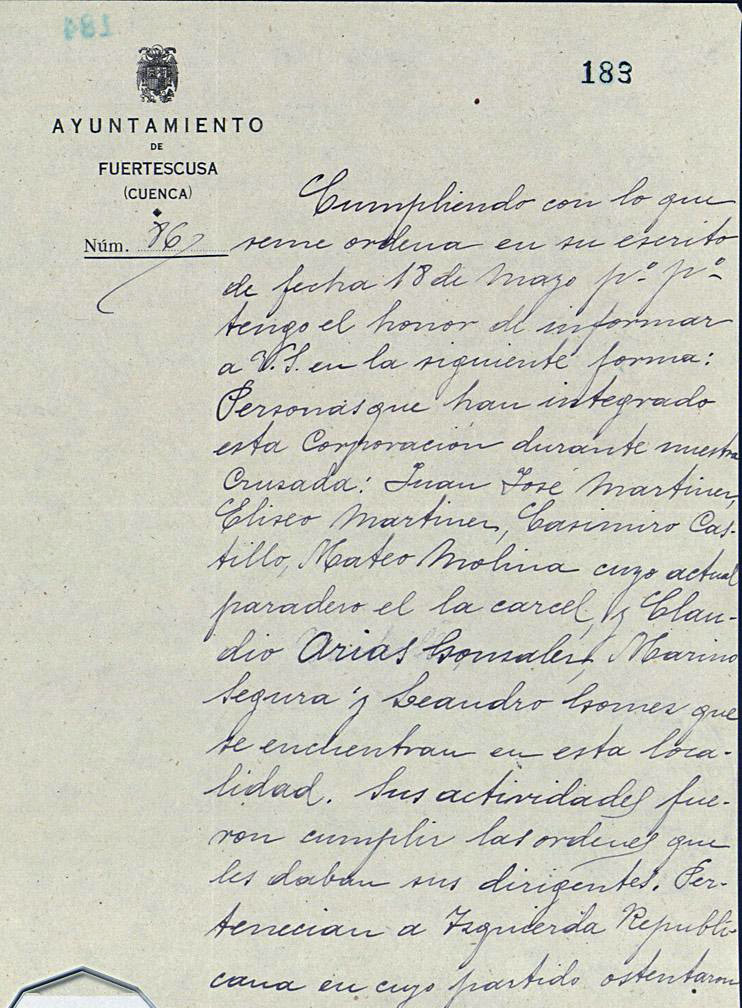 184
183
AYUNTAMIENTO
DE
FUERTESCUSA
(CUENCA)
Núm. 867
Cumpliendo con lo que
seme ordena en su escrito
de fecha 18 de Mayo pº. pº.
tengo el honor de informar
a V.S. en la siguiente forma:
Personas que han integrado
esta Corporación durante nuestra
Cruzada: Juan José Martinez,
Eliseo Martinez, Casimiro Cas-
tillo, Mateo Molina cuyo actual
paradero el la carcel, y Clau-
dio Arias Gonzalez, Marino
Segura y Leandro Gomez que
se encuentran en esta loca-
lidad. Sus actividades fue-
ron cumplir las ordenes que
les daban sus dirigentes. Per-
tenecian a Izquierda Republi-
cana en cuyo partido ostentaron